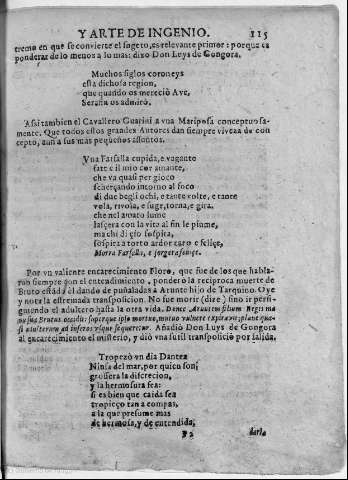 Y ARTE DE INGENIO. 115
tremo en que se convierte el sugeto, es relevante primor: porque es
ponderar de lo menos a lo mas: dixo Don Luys de Gongora.
Muchos siglos coroneys
esta dichosa region,
que quando os mereciò Ave,
Serafin os admirò.
Assi tambien el Cavallero Guarini a vna Mariposa conceptuosa-
mente. Que todos estos grandes Autores dan siempre viveza de con-
cepto, aun a sus mas pequeños assuntos.
Vna Farfalla cupida, e vagante
fatt è il mio cor amante,
che va quasi per gioco
scherçando intorno al foco
di due begli ochi, e tante volte, e tante
vola, rivola, e fugge, torna, e gira.
che nel amato lume
lascera con la vita al fin le piume,
ma chi di çio sospira,
sospira a torto ardor caro e feliçe,
Morra Farfalla, e sorgera feniçe.
Por vn valiente encarecimiento Floro, que fue de los que habla-
ron siempre con el entendimiento, ponderò la reciproca muerte de
Bruto estando de puñaladas a Arunte hijo de Tarquino. Oye
y nota la estremada transposicion. No fue morir (dize) sino ir persi-
guiendo el adultero hasta la otra vida. Donec Aruntem filium Regis ma
nu sua Brutus occidit: superque ipso mortuo, mutuo vulnere expiravit; plane qua-
si adulterum ad inferos vsque sequeretur. Añadiò Don Luys de Gongora
al encarecimiento el misterio, y diò vna sutil transposicion por salida.
Tropezò vn dia Dantea
Ninfa del mar, por quien son
grossera la discrecion,
y la hermosura fea:
si es bien que caida sea
tropieço tan a compas,
a la que presume mas
de hermosa, y de entendida,
darla